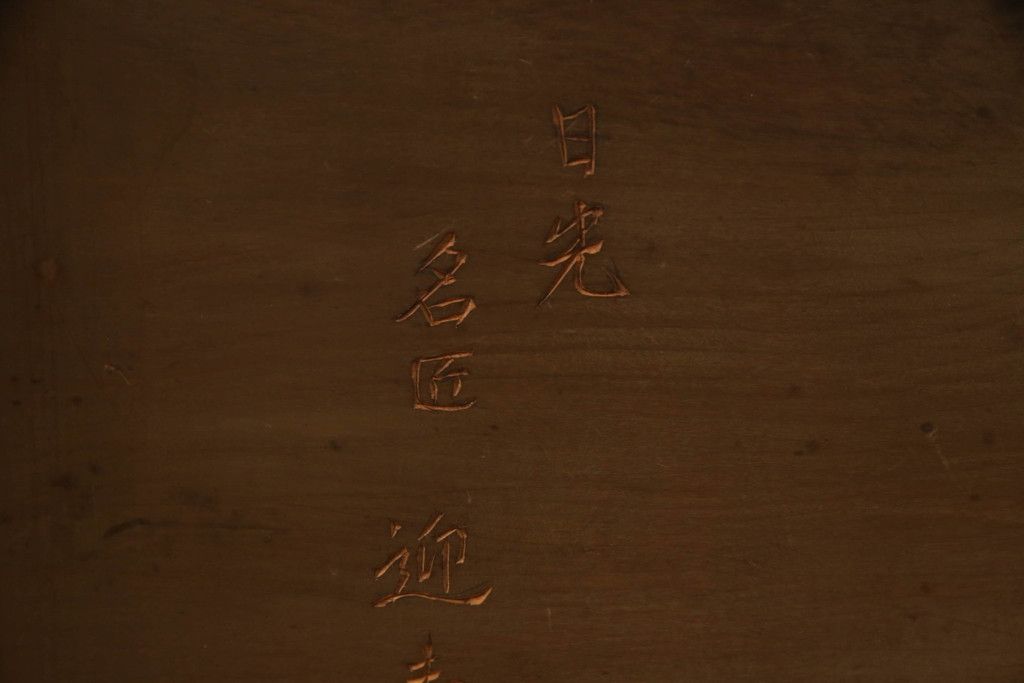 日光
名匠迎